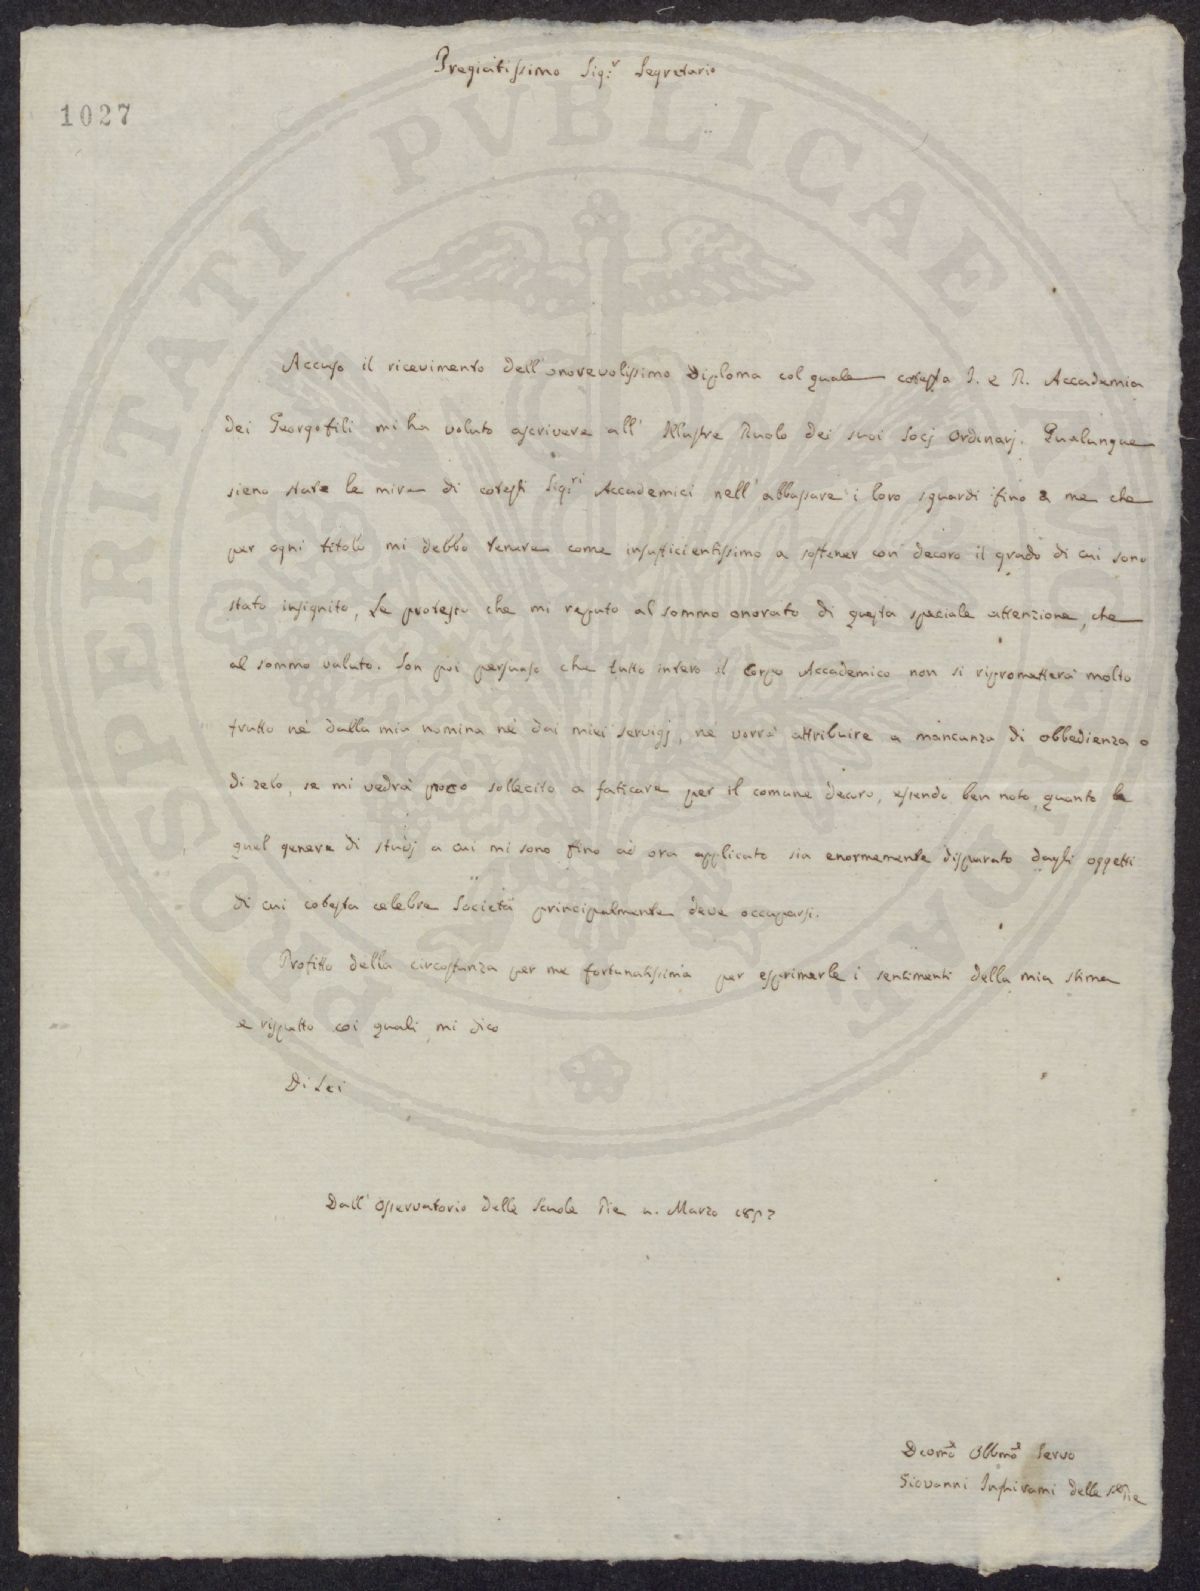 Pregiatissimo Sig.r Segretario
1027
PROSPERITATI PVBLICAE AVGENDAE
Accuso il ricevimento dell'onorevolissimo Diploma col quale cotesta I. e R. Accademia
dei Georgofili mi ha voluto ascrivere all'Illustre Ruolo dei suoi Socj Ordinarj. Qualunque
sieno state le mire di cotesti Sig.ri Accademici nell'abbassare i loro sguardi fino a me che
per ogni titolo mi debbo tenere come insufficientissimo a sostener con decoro il grado di cui sono
stato insignito, Le protesto che mi reputo al sommo onorato di questa speciale attenzione, che
al sommo valuto. Son poi persuaso che tutto intero il Corpo Accademico non si ripromettera molto
frutto nè dalla mia nomina nè dai miei servigj, nè vorrà attribuire a mancanza di obbedienza o
di zelo, se mi vedrà poco sollecito a faticare per il comune decoro, essendo ben noto, quanto
quel genere di studj a cui mi sono fino ad ora applicato sia enormemente disparato dagli oggetti
di cui cotesta celebre Società principalmente deve occuparsi.
Profitto della circostanza per me fortunatissima per esprimerle i sentimenti della mia stima
e rispetto coi quali mi dico
Di Lei
Dall'Osservatorio delle Scuole Pie Marzo
Devmo Obbmo Servo
Giovanni Inghirami delle S. Pie